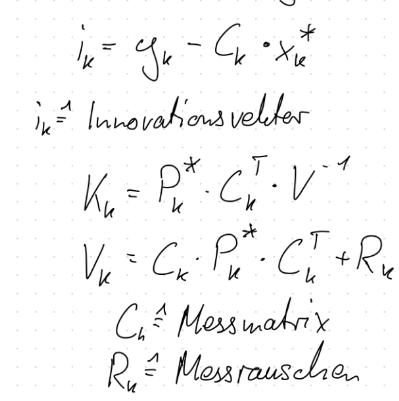 i_k = y_k - C_k · x_k^*
i_k ≙ Innovationsvektor
K_k = P_k^* · C_k^T · V^{-1}
V_k = C_k · P_k^* · C_k^T + R_k
C_k ≙ Messmatrix
R_k ≙ Messrauschen